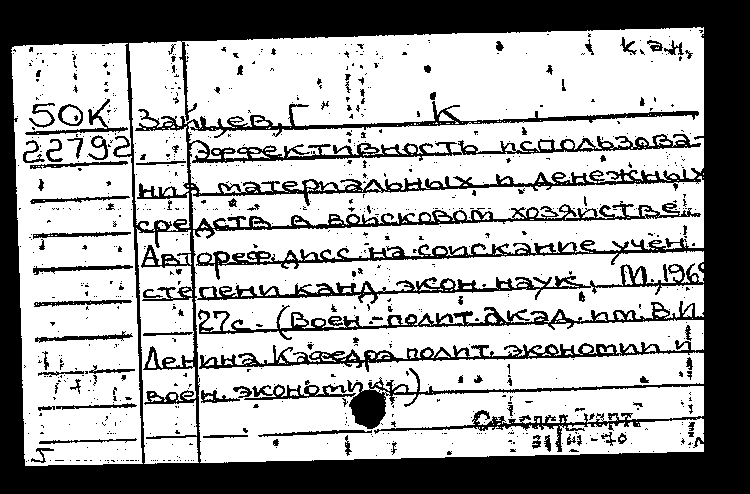 к.э.н.
50К Зайцев, Г К
22792 Эффективность использова-
ния материальных и денежных
средств в войсковом хозяйстве.
Автореф. дисс. на соискание учен.
степени канд. экон. наук. М., 1969
27с. (Воен.-полит. акад. им. В.И.
Ленина. Кафедра полит. экономии и
воен. экономики).
См. след. карт.
31/III-70